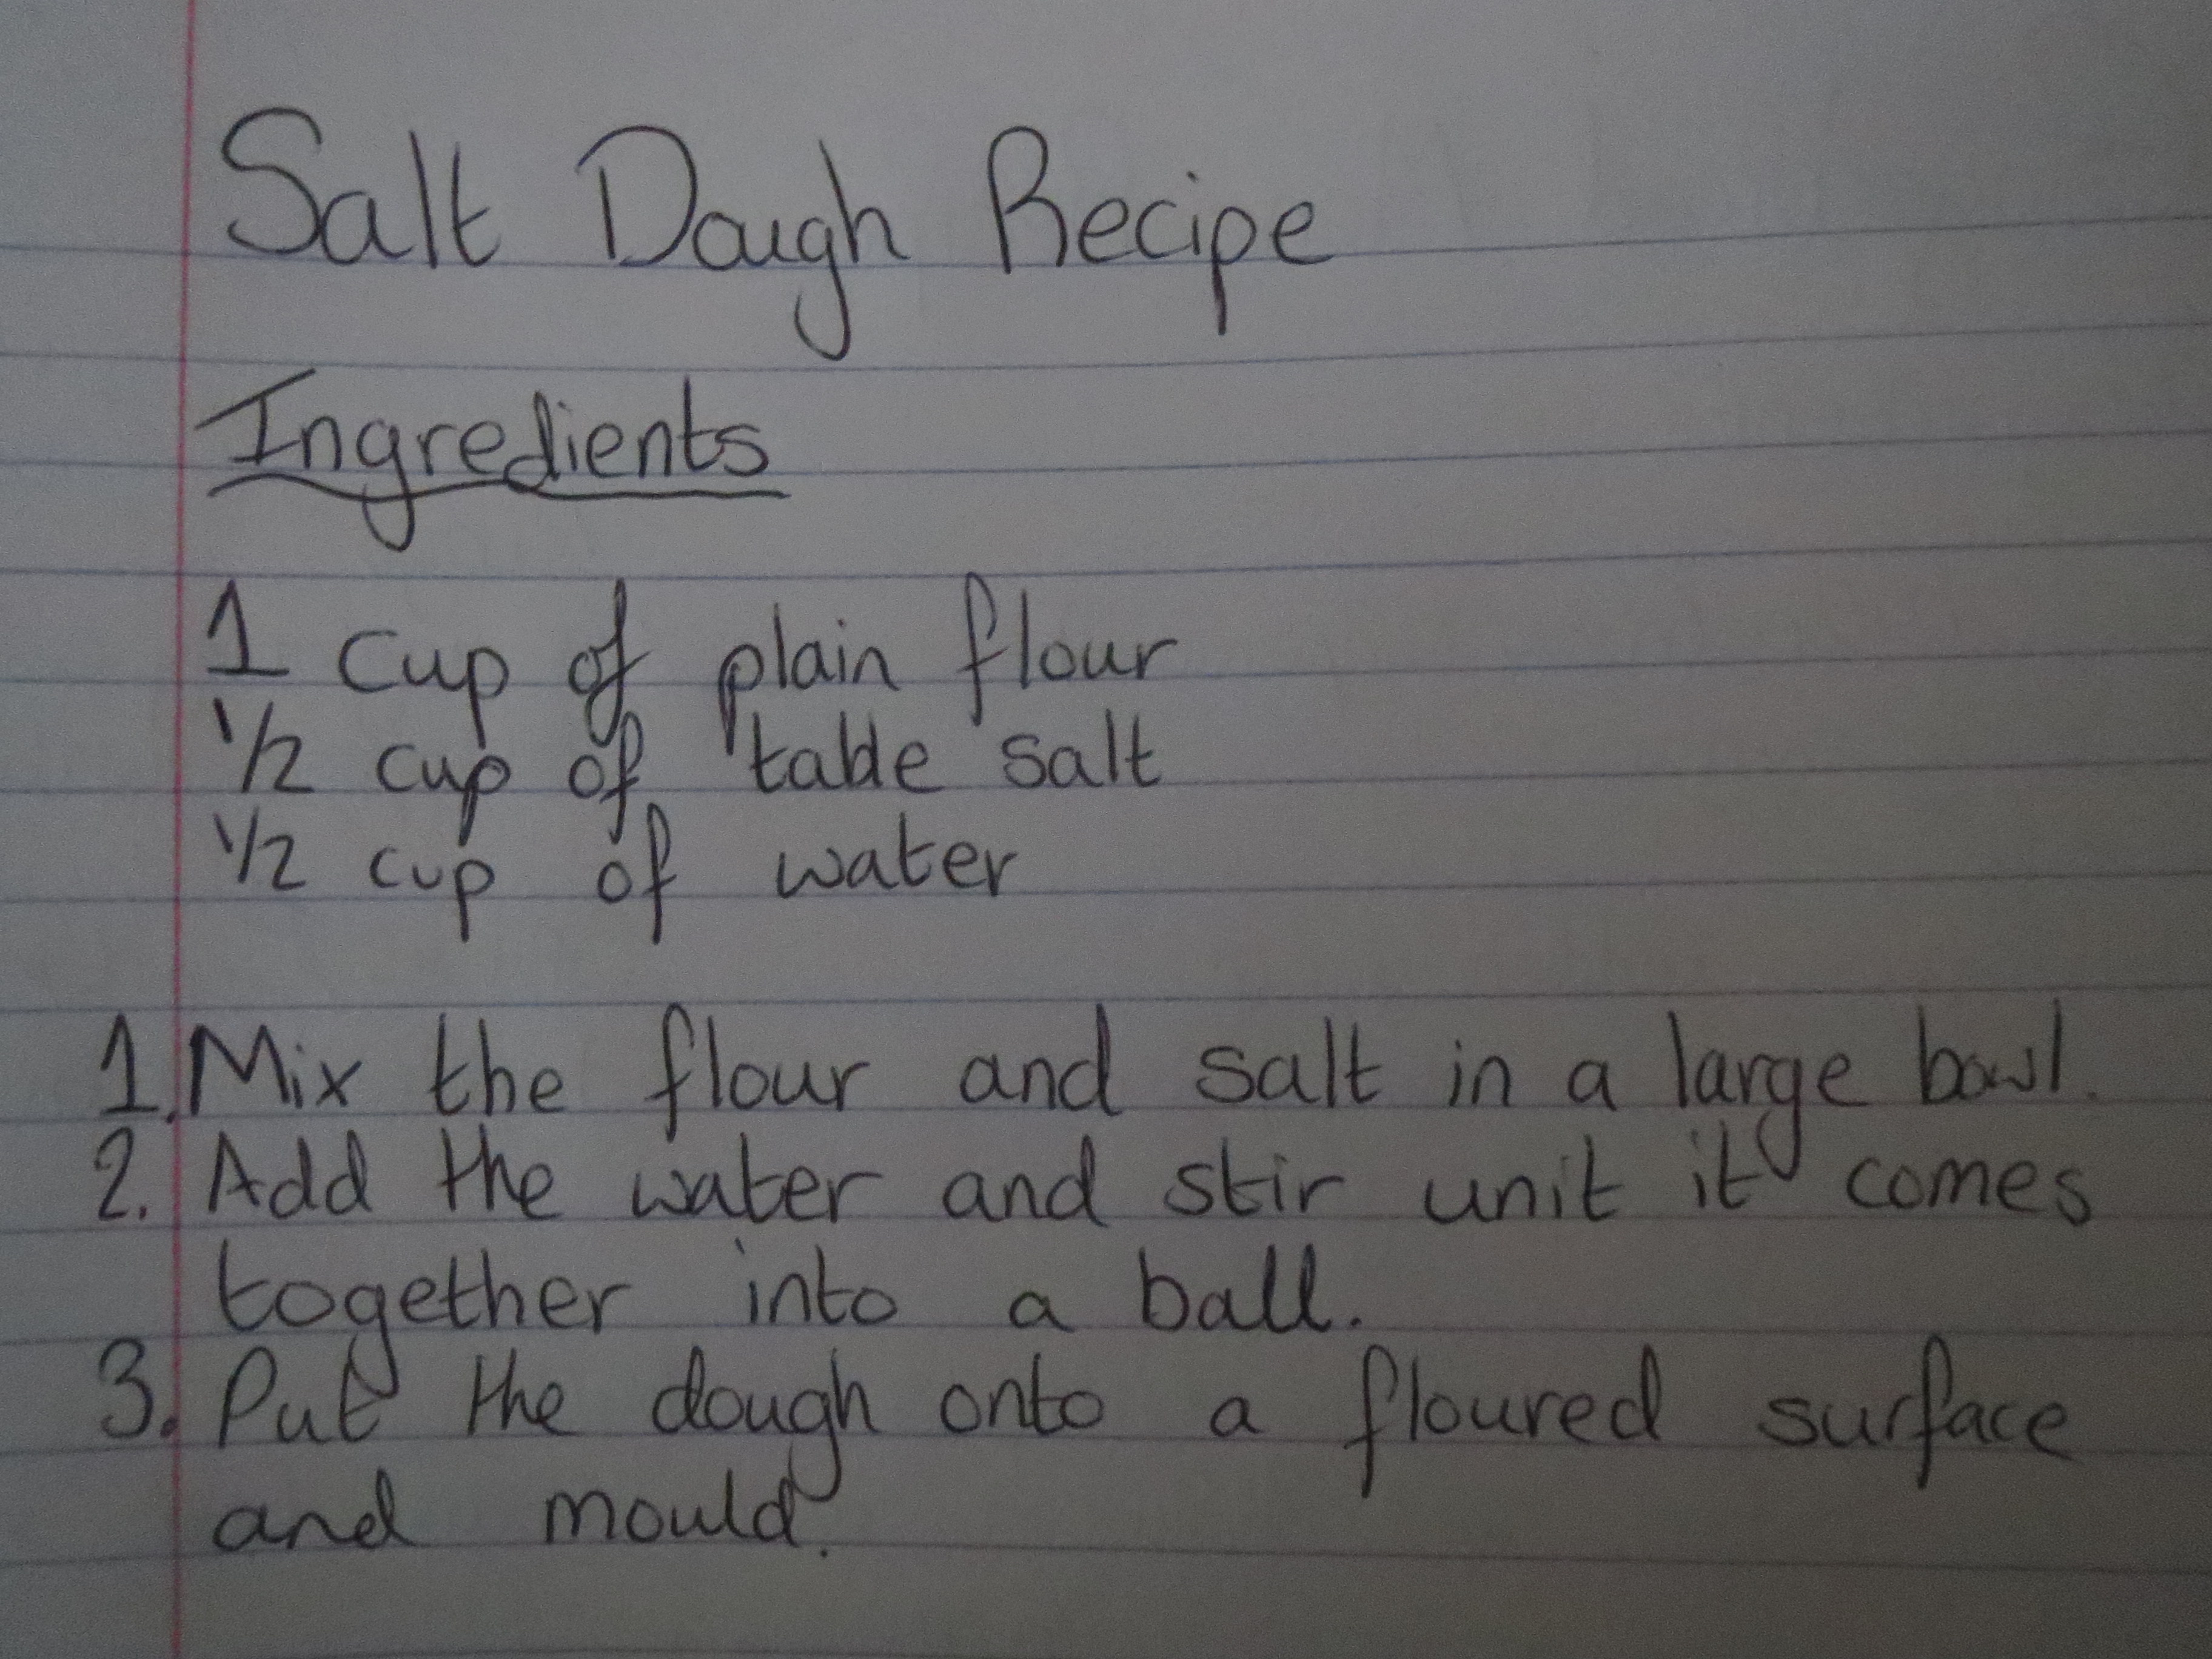 Salt Dough Recipe
Ingredients
1 cup of plain flour
1/2 cup of table salt
1/2 cup of water
1. Mix the flour and salt in a large bowl.
2. Add the water and stir unit it comes
together into a ball.
3. Put the dough onto a floured surface
and mould.